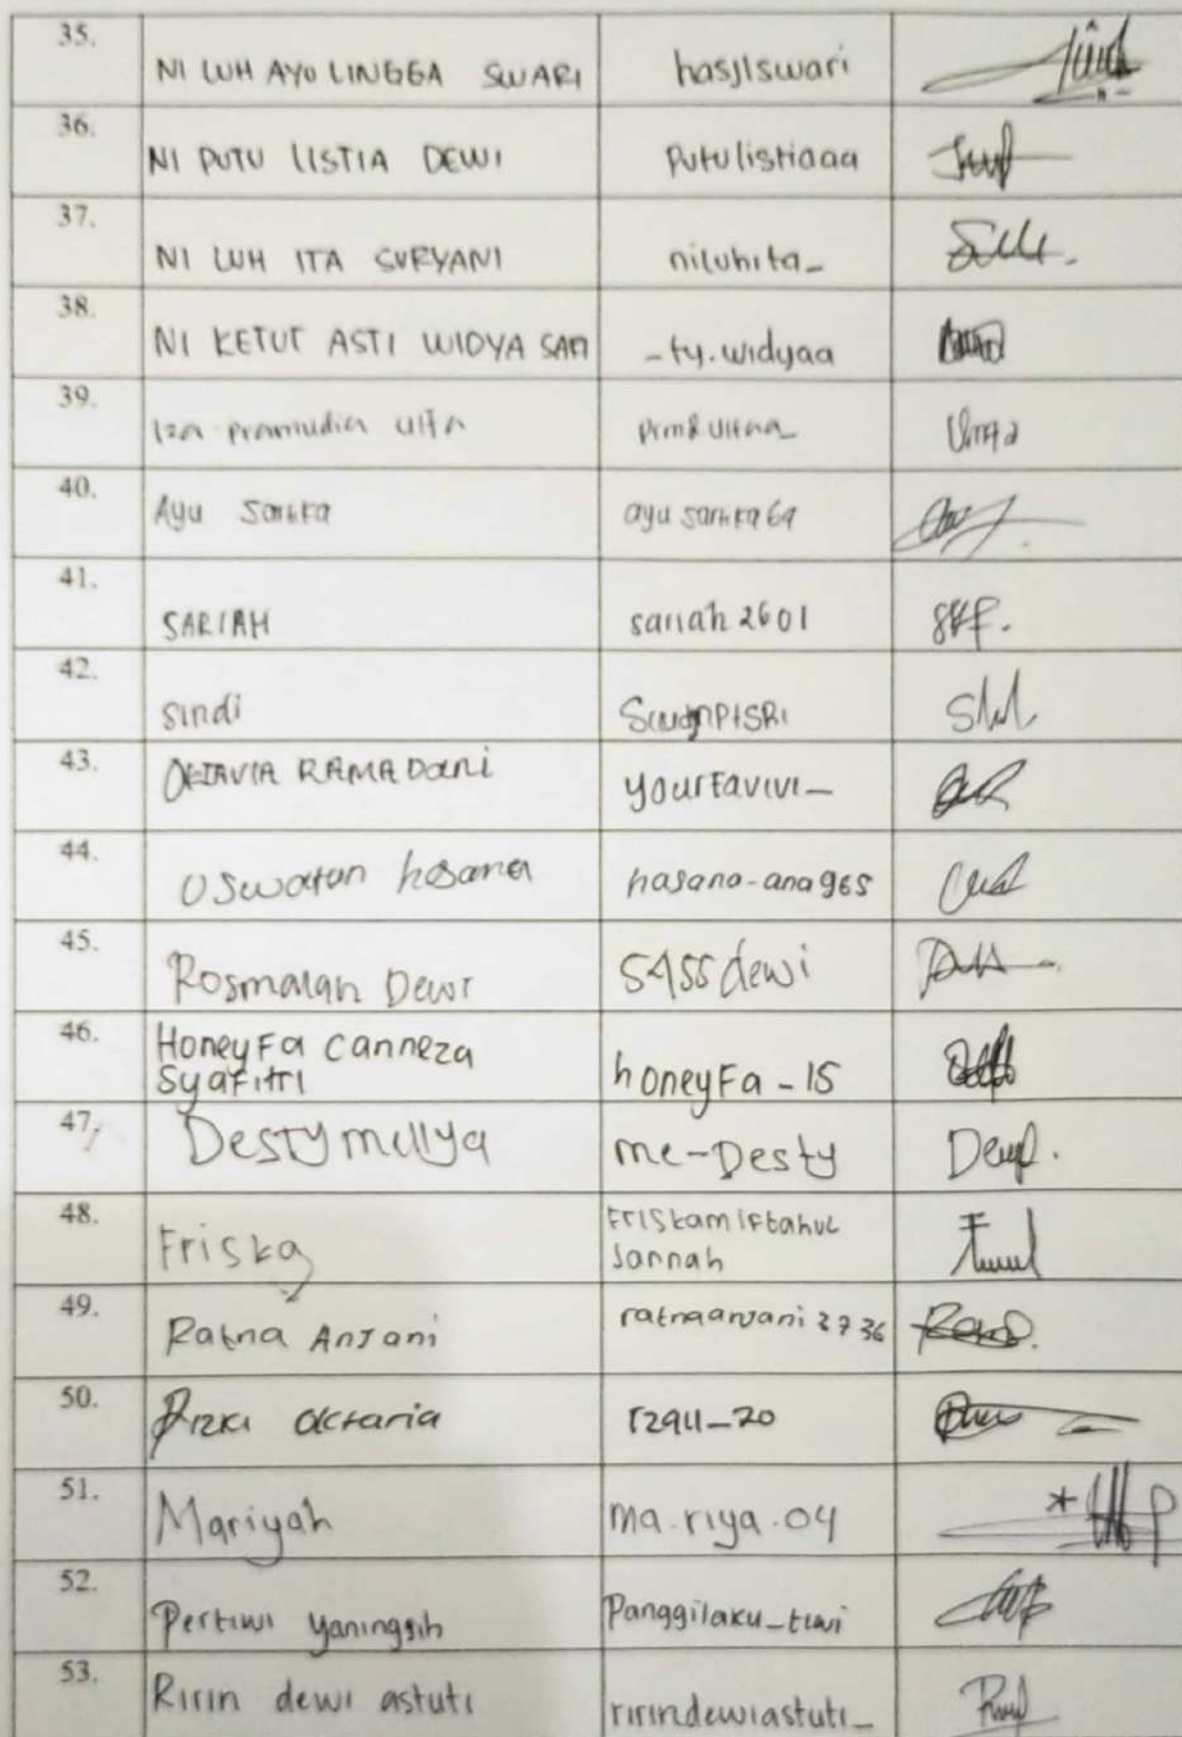 35. NI LUH AYU LINGGA SWARI hasjlswari
36. NI PUTU LISTIA DEWI Putulistiaaa
37. NI LUH ITA SURYANI niluhita_
38. NI KETUT ASTI WIDYA SARI _ty.widyaa
39. Iza pramudia ulfa
40. Ayu Sartika ayusartika69
41. SARIAH sariah2601
42. sindi
43. OKTAVIA RAMADani yourfavivi_
44. Uswatun hasana hasana-ana965
45. Rosmalah Dewi 5455dewi
46. HoneyFa canneza
Syafitri honeyFa_15
47. Desty mellya me-Desty
48. Friska Friskamiftahul
Jannah
49. Ratna AnJani ratnaanjani2736
50. Rizki oktaria rzqu_20
51. Mariyah ma.riya.04
52. Pertiwi yaningsih Panggilaku_tiwi
53. Ririn dewi astuti ririndewiastuti_